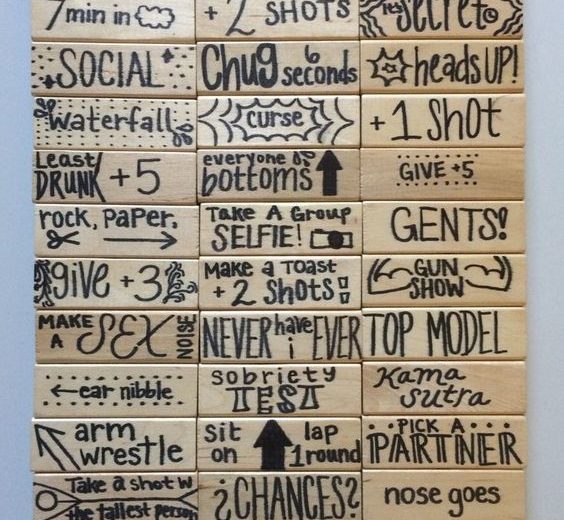 7 min in
+ 2 SHOTS
it's Secret
SOCIAL
Chug 6 seconds
heads UP!
waterfall
curse
+ 1 Shot
Least DRUNK +5
everyone bottoms
GIVE +5
rock, paper,
Take A Group
SELFIE!
GENTS!
give +3
Make a Toast
+ 2 Shots!
GUN
SHOW
MAKE A SEX NOISE
NEVER have i EVER
TOP MODEL
ear nibble
sobriety
TEST
Kama
Sutra
arm
wrestle
sit on lap 1round
PICK A
PARTNER
Take a shot w
the tallest person
¿CHANCES?
nose goes